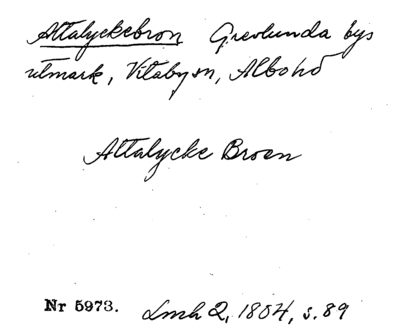 Attalyckebron Grevlunda bys
utmark, Vitaby sn, Albo hd
Attalycke Broen
Nr 5973. Lmh 2, 1804, s. 89